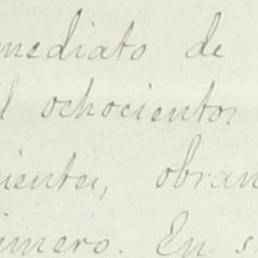 mediato de
l ochocientos
ientes, obran
imero. En s